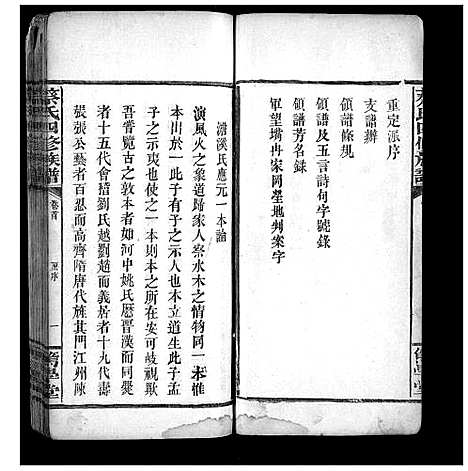 重定派序
支譜辦
領譜條規
領譜及五言詩句字號錄
領譜芳名錄
軍望塘冉家岡塋地判案字
蔡氏四修族譜
濟學堂
蔡氏四修族譜
卷首
一
濟溪氏應元一本論
演風火之象道歸家人察水木之情物同一本惟
本出於一此子有子之示人也木立道生此子孟
子之示夷也使為一本則本之所在安可歧視耶
吾嘗覽古之敦本者如河中姚氏歷晉漢而同爨
者十五代會稽劉氏越劉趙而義居者十九代壽
張張公藝者百忍而高齊隋唐代旌其門江州陳